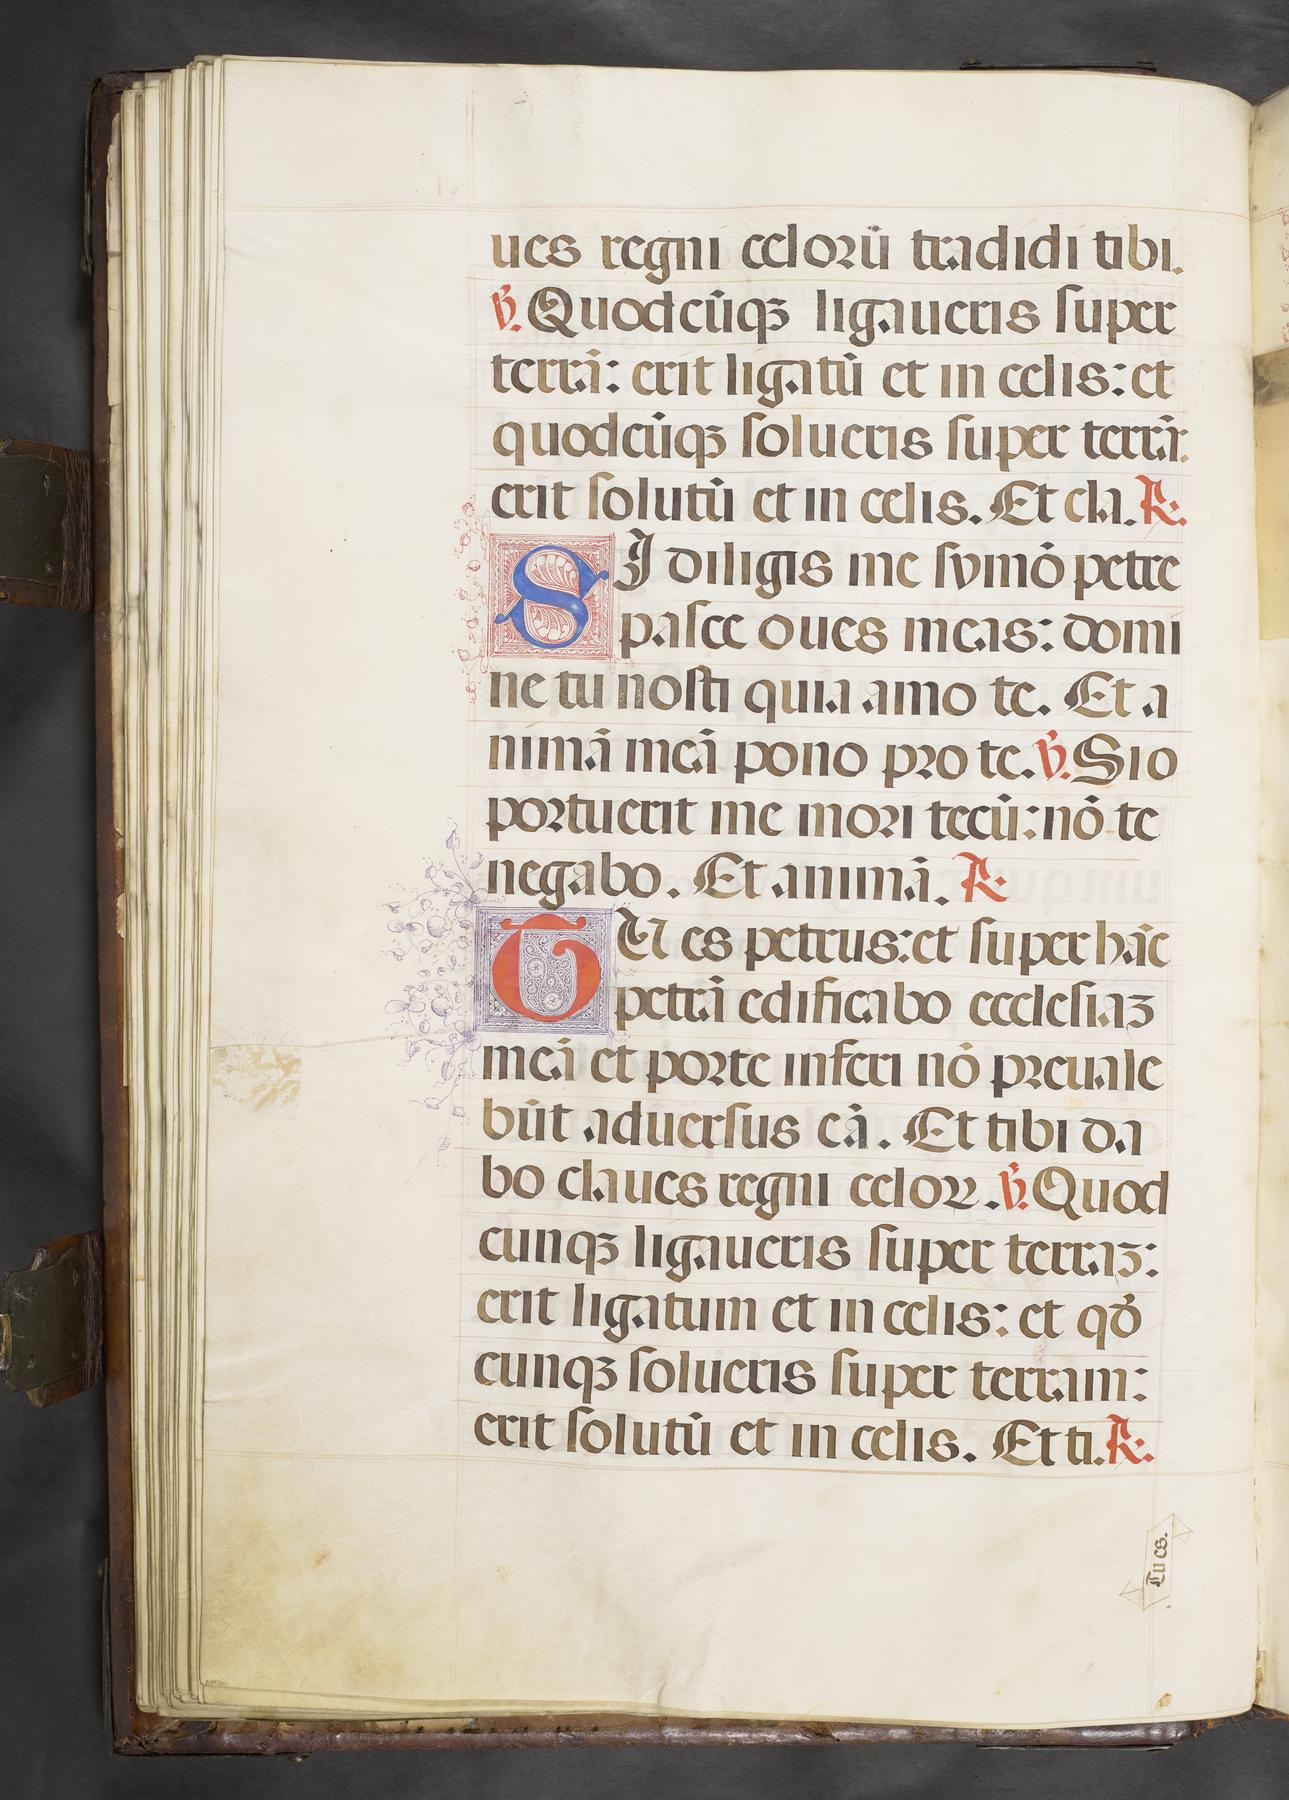 ues regni celorū tradidi tibi.
℣. Quodcūqꝫ ligaueris super
terrā: erit ligatū et in celis: et
quodcūqꝫ solueris super terrā:
erit solutū et in celis. Et cla. ℟.
SI diligis me symō petre
pasce oues meas: domi
ne tu nosti quia amo te. Et a
nimā meā pono pro te. ℣. Si o
portuerit me mori tecū: nō te
negabo. Et animā. ℟.
TU es petrus: et super hāc
petrā edificabo ecclesiaꝫ
meā et porte inferi nō preuale
būt aduersus eā. Et tibi da
bo claues regni celoꝝ. ℣. Quod
cunqꝫ ligaueris super terraꝫ:
erit ligatum et in celis: et qđ
cunqꝫ solueris super terram:
erit solutū et in celis. Et ti. ℟.
Tu es.